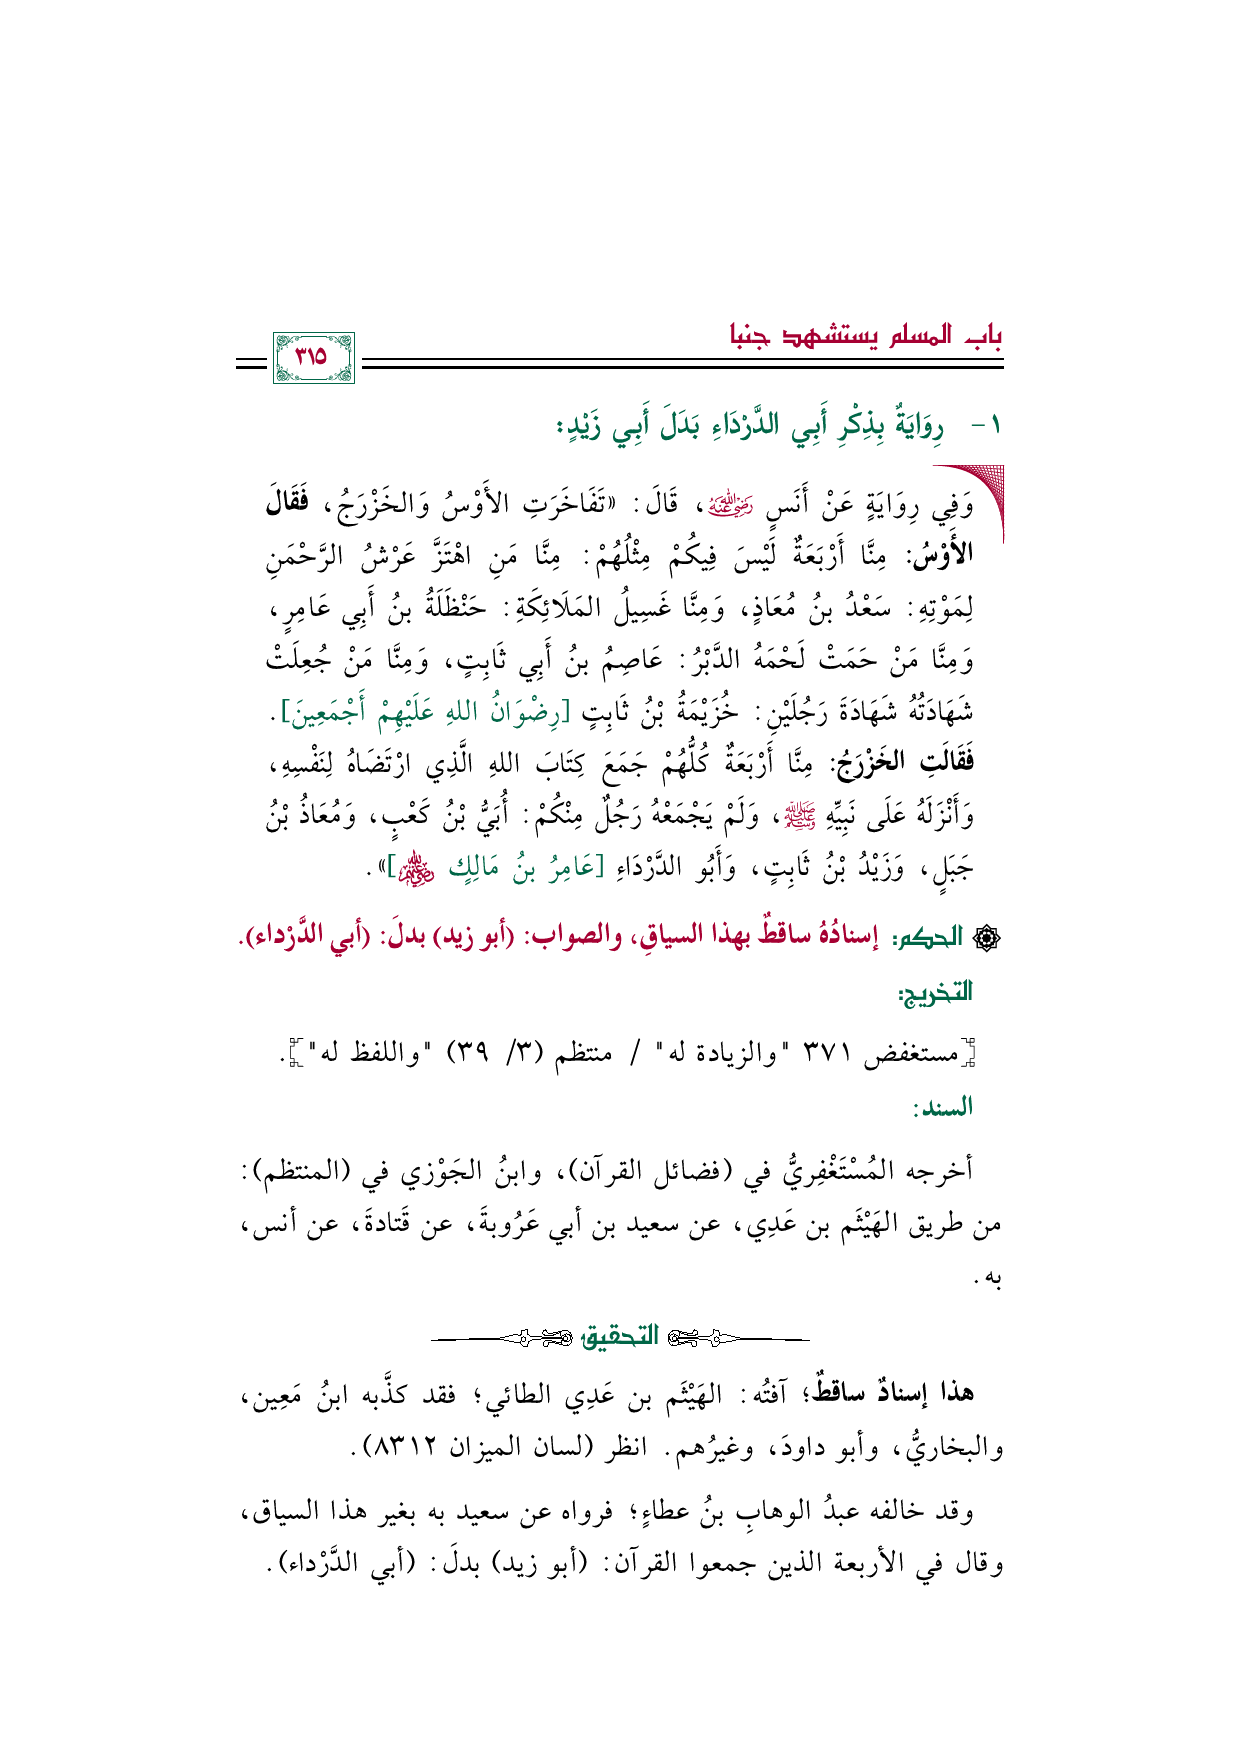 باب المسلم يستشهد جنبا
٣١٥
١- رِوَايَةٌ بِذِكْرِ أَبِي الدَّرْدَاءِ بَدَلَ أَبِي زَيْدٍ:
وَفِي رِوَايَةٍ عَنْ أَنَسٍ رضي الله عنه، قَالَ: «تَفَاخَرَتِ الأَوْسُ وَالخَزْرَجُ، فَقَالَ
الأَوْسُ: مِنَّا أَرْبَعَةٌ لَيْسَ فِيكُمْ مِثْلُهُمْ: مِنَّا مَنِ اهْتَزَّ عَرْشُ الرَّحْمَنِ
لِمَوْتِهِ: سَعْدُ بنُ مُعَاذٍ، وَمِنَّا غَسِيلُ المَلَائِكَةِ: حَنْظَلَةُ بنُ أَبِي عَامِرٍ،
وَمِنَّا مَنْ حَمَتْ لَحْمَهُ الدَّبْرُ: عَاصِمُ بنُ أَبِي ثَابِتٍ، وَمِنَّا مَنْ جُعِلَتْ
شَهَادَتُهُ شَهَادَةَ رَجُلَيْنِ: خُزَيْمَةُ بْنُ ثَابِتٍ [رِضْوَانُ اللهِ عَلَيْهِمْ أَجْمَعِينَ].
فَقَالَتِ الخَزْرَجُ: مِنَّا أَرْبَعَةٌ كُلُّهُمْ جَمَعَ كِتَابَ اللهِ الَّذِي ارْتَضَاهُ لِنَفْسِهِ،
وَأَنْزَلَهُ عَلَى نَبِيِّهِ ﷺ، وَلَمْ يَجْمَعْهُ رَجُلٌ مِنْكُمْ: أُبَيُّ بْنُ كَعْبٍ، وَمُعَاذُ بْنُ
جَبَلٍ، وَزَيْدُ بْنُ ثَابِتٍ، وَأَبُو الدَّرْدَاءِ [عَامِرُ بنُ مَالِكٍ رضي الله عنهم]».
الحكم: إسنادُهُ ساقطٌ بهذا السياقِ، والصواب: (أبو زيد) بدلَ: (أبي الدَّرْداء).
التخريج:
[مستغفض ٣٧١ "والزيادة له" / منتظم (٣/ ٣٩) "واللفظ له"].
السند:
أخرجه المُسْتَغْفِريُّ في (فضائل القرآن)، وابنُ الجَوْزي في (المنتظم):
من طريق الهَيْثَم بن عَدِي، عن سعيد بن أبي عَرُوبةَ، عن قَتادةَ، عن أنس،
به.
التحقيق
هذا إسنادٌ ساقطٌ؛ آفتُه: الهَيْثَم بن عَدِي الطائي؛ فقد كذَّبه ابنُ مَعِين،
والبخاريُّ، وأبو داودَ، وغيرُهم. انظر (لسان الميزان ٨٣١٢).
وقد خالفه عبدُ الوهابِ بنُ عطاءٍ؛ فرواه عن سعيد به بغير هذا السياق،
وقال في الأربعة الذين جمعوا القرآن: (أبو زيد) بدلَ: (أبي الدَّرْداء).